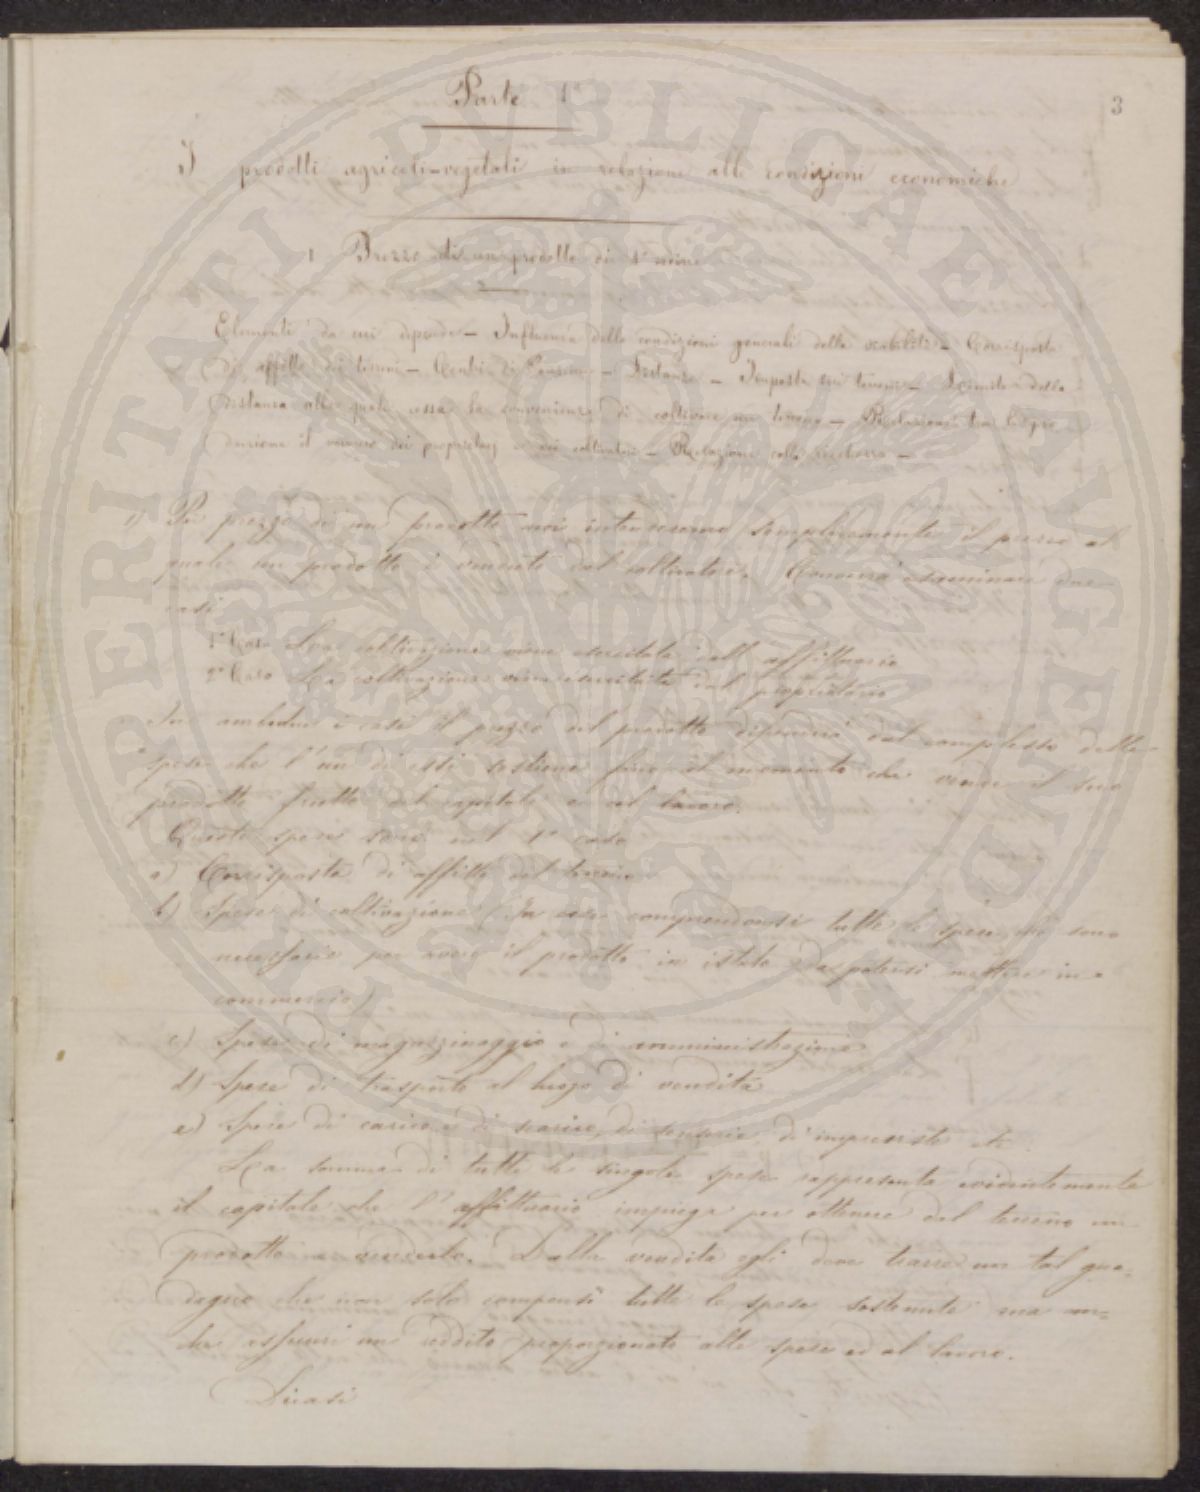 3
Parte 1ª
I prodotti agricoli-vegetali in relazione alle condizioni economiche
1 Prezzo di un prodotto di 1°
Elementi da cui dipende – Influenza delle condizioni generali della viabilità – Corrisposta
di affitto dei terreni – – Distanze – Imposta sui terreni – della
distanza alla quale cessa la convenienza di coltivare un terreno – Relazioni tra la pro
duzione il numero dei proprietarj e dei coltivatori – Relazioni colla ricchezza –
1) Per prezzo di un prodotto noi intenderemo semplicemente il prezzo al
quale un prodotto è venduto dal coltivatore. Converrà esaminare due
casi
1° Caso La coltivazione viene esercitata dall'affittuario
2° Caso La coltivazione viene esercitata dal proprietario
In ambedue i casi il prezzo del prodotto dipenderà dal complesso delle
spese che l'un di essi sostiene fino al momento che vende il suo
prodotto frutto del capitale e del lavoro.
Queste spese sono nel 1° caso
a) Corrisposta di affitto del terreno
b) Spese di coltivazione (In esse comprendonsi tutte le spese che sono
necessarie per avere il prodotto in istato da potersi mettere in
commercio)
c) Spese di magazzinaggio e di amministrazione
d) Spese di trasporto al luogo di vendita
e) Spese di carico e di scarico, di senseria di imprevisti etc.
La somma di tutte le singole spese rappresenta evidentemente
il capitale che l'affittuario impiega per ottenere dal terreno un
prodotto e venderlo. Dalla vendita egli deve trarre un tal gua-
dagno che non solo compensi tutte le spese sostenute ma an=
che assicuri un reddito proporzionato alle spese ed al lavoro.
Dicasi
PROSPERITATI PUBLICAE AVGENDAE